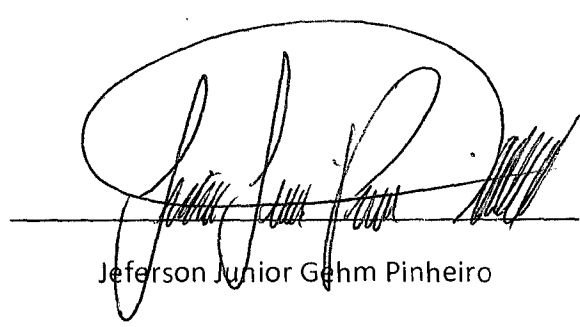 Jeferson Junior Gehm Pinheiro